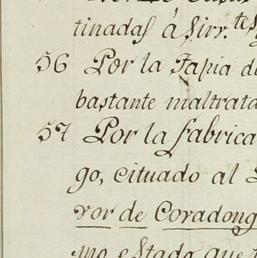 tinadas á Sirr.tes
56 Por la Tapia de
bastante maltrata
57 Por la fabrica
go, cituado al
vor de Covadong
mo estado que